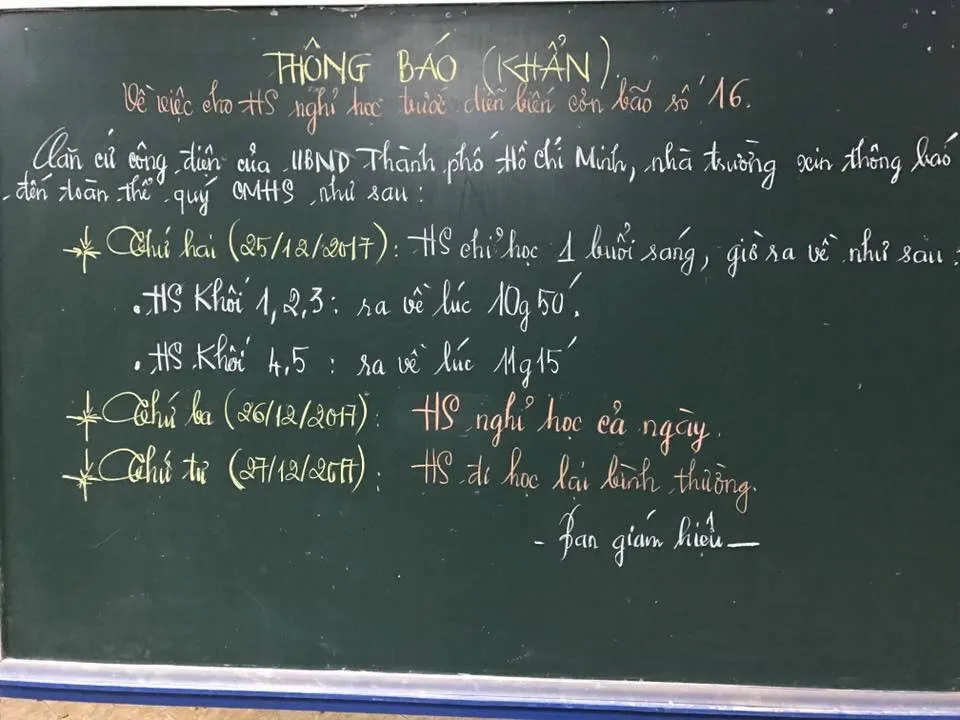 THÔNG BÁO (KHẨN)
Về việc cho HS nghỉ học trước diễn biến cơn bão số 16.
Căn cứ công điện của UBND Thành phố Hồ Chí Minh, nhà trường xin thông báo
đến toàn thể quý CMHS như sau:
Thứ hai (25/12/2017): HS chỉ học 1 buổi sáng, giờ ra về như sau:
. HS Khối 1, 2, 3: ra về lúc 10g50'.
. HS Khối 4, 5: ra về lúc 11g15'
Thứ ba (26/12/2017): HS nghỉ học cả ngày.
Thứ tư (27/12/2017): HS đi học lại bình thường.
- Ban giám hiệu —